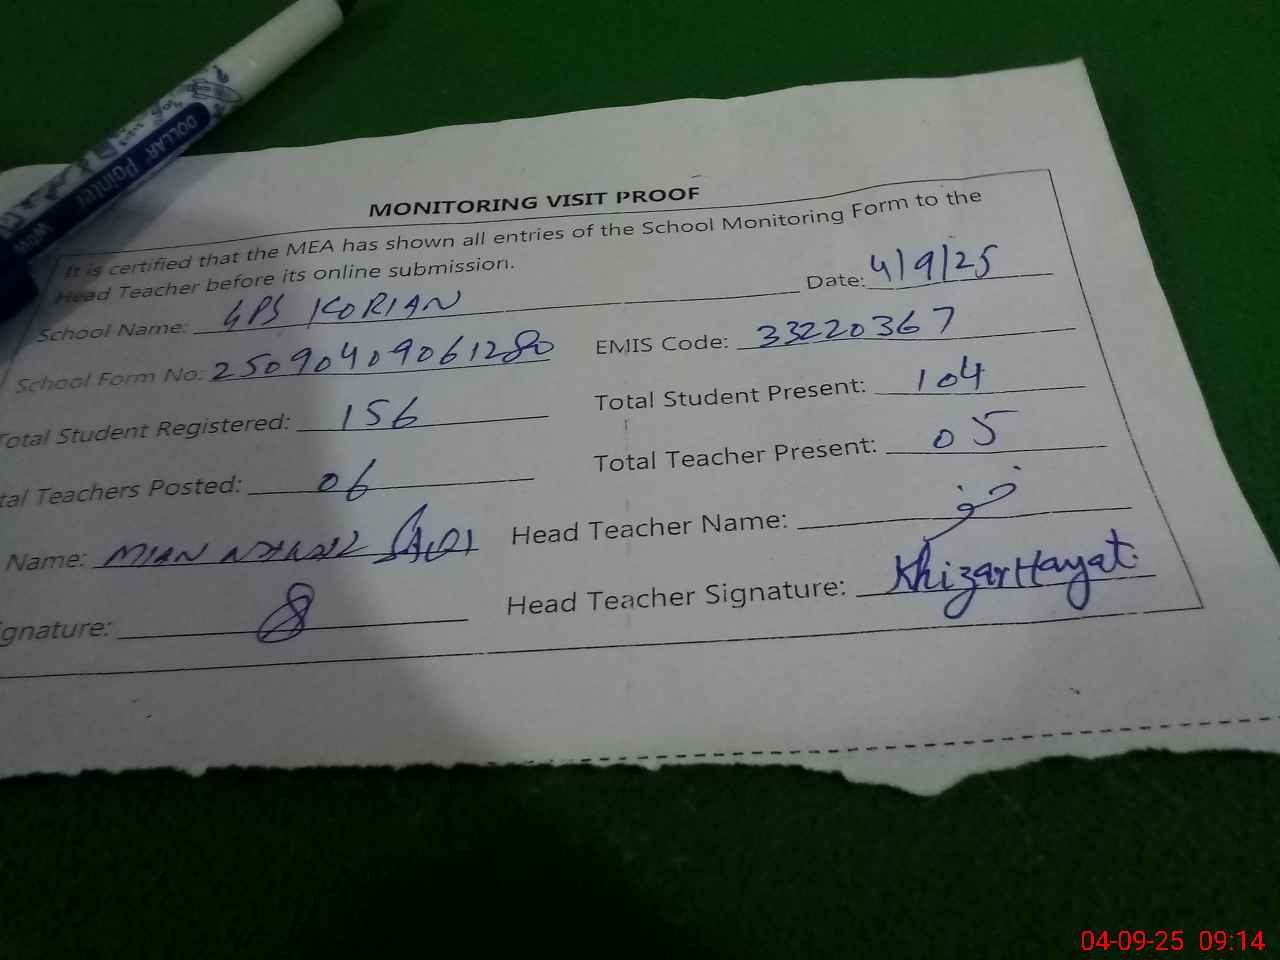 DOLLAR Pointer
WOW
MONITORING VISIT PROOF
It is certified that the MEA has shown all entries of the School Monitoring Form to the
Head Teacher before its online submission.
Date: 4/9/25
School Name: GPS KORIAN
School Form No: 25090409061280 EMIS Code: 33220367
Total Student Registered: 156 Total Student Present: 104
tal Teachers Posted: 06 Total Teacher Present: 05
Name: MIAN Head Teacher Name:
ignature: Head Teacher Signature: Khizar Hayat
04-09-25 09:14